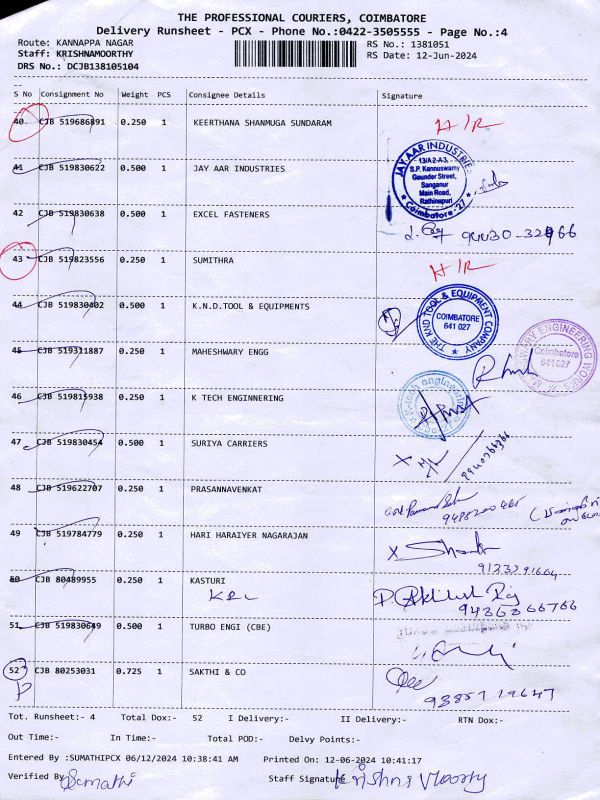 THE PROFESSIONAL COURIERS, COIMBATORE
Delivery Runsheet - PCX - Phone No.:0422-3505555 - Page No.:4
Route: KANNAPPA NAGAR
RS No.: 1381051
Staff: KRISHNAMOORTHY
RS Date: 12-Jun-2024
DRS No.: DCJB138105104
S No Consignment No Weight PCS Consignee Details Signature
40 CJB 519686891 0.250 1 KEERTHANA SHANMUGA SUNDARAM H/R
41 CJB 519830622 0.500 1 JAY AAR INDUSTRIES
JAY AAR INDUSTRIES
13/A2-A3,
S.P. Kannuswamy
Gounder Street,
Sanganur
Main Road,
Rathinapuri
Coimbatore-27
42 CJB 519830638 0.500 1 EXCEL FASTENERS
43 CJB 519823556 0.250 1 SUMITHRA H/R
44 CJB 519830402 0.500 1 K.N.D.TOOL & EQUIPMENTS
THE KND TOOL & EQUIPMENT COMPANY
COIMBATORE
641 027
45 CJB 519311887 0.250 1 MAHESHWARY ENGG
ENGINEERING WORKS
Coimbatore
641 027
46 CJB 519815938 0.250 1 K TECH ENGINNERING
47 CJB 519830454 0.500 1 SURIYA CARRIERS
48 CJB 519622707 0.250 1 PRASANNAVENKAT
49 CJB 519784779 0.250 1 HARI HARAIYER NAGARAJAN
50 CJB 80489955 0.250 1 KASTURI
51 CJB 519830649 0.500 1 TURBO ENGI (CBE)
52 CJB 80253031 0.725 1 SAKTHI & CO
9385719647
Tot. Runsheet:- 4 Total Dox:- 52 I Delivery:- II Delivery:- RTN Dox:-
Out Time:- In Time:- Total POD:- Delvy Points:-
Entered By :SUMATHIPCX 06/12/2024 10:38:41 AM Printed On: 12-06-2024 10:41:17
Verified By Sumathi Staff Signature Krishna Moorthy